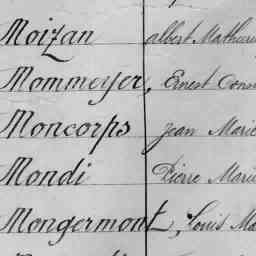 Moizan albert Mathuri
Mommeyer, Ernest Cons
Moncorps Jean Marie
Mondi Pierre Mari
Mongermont, Louis Ma